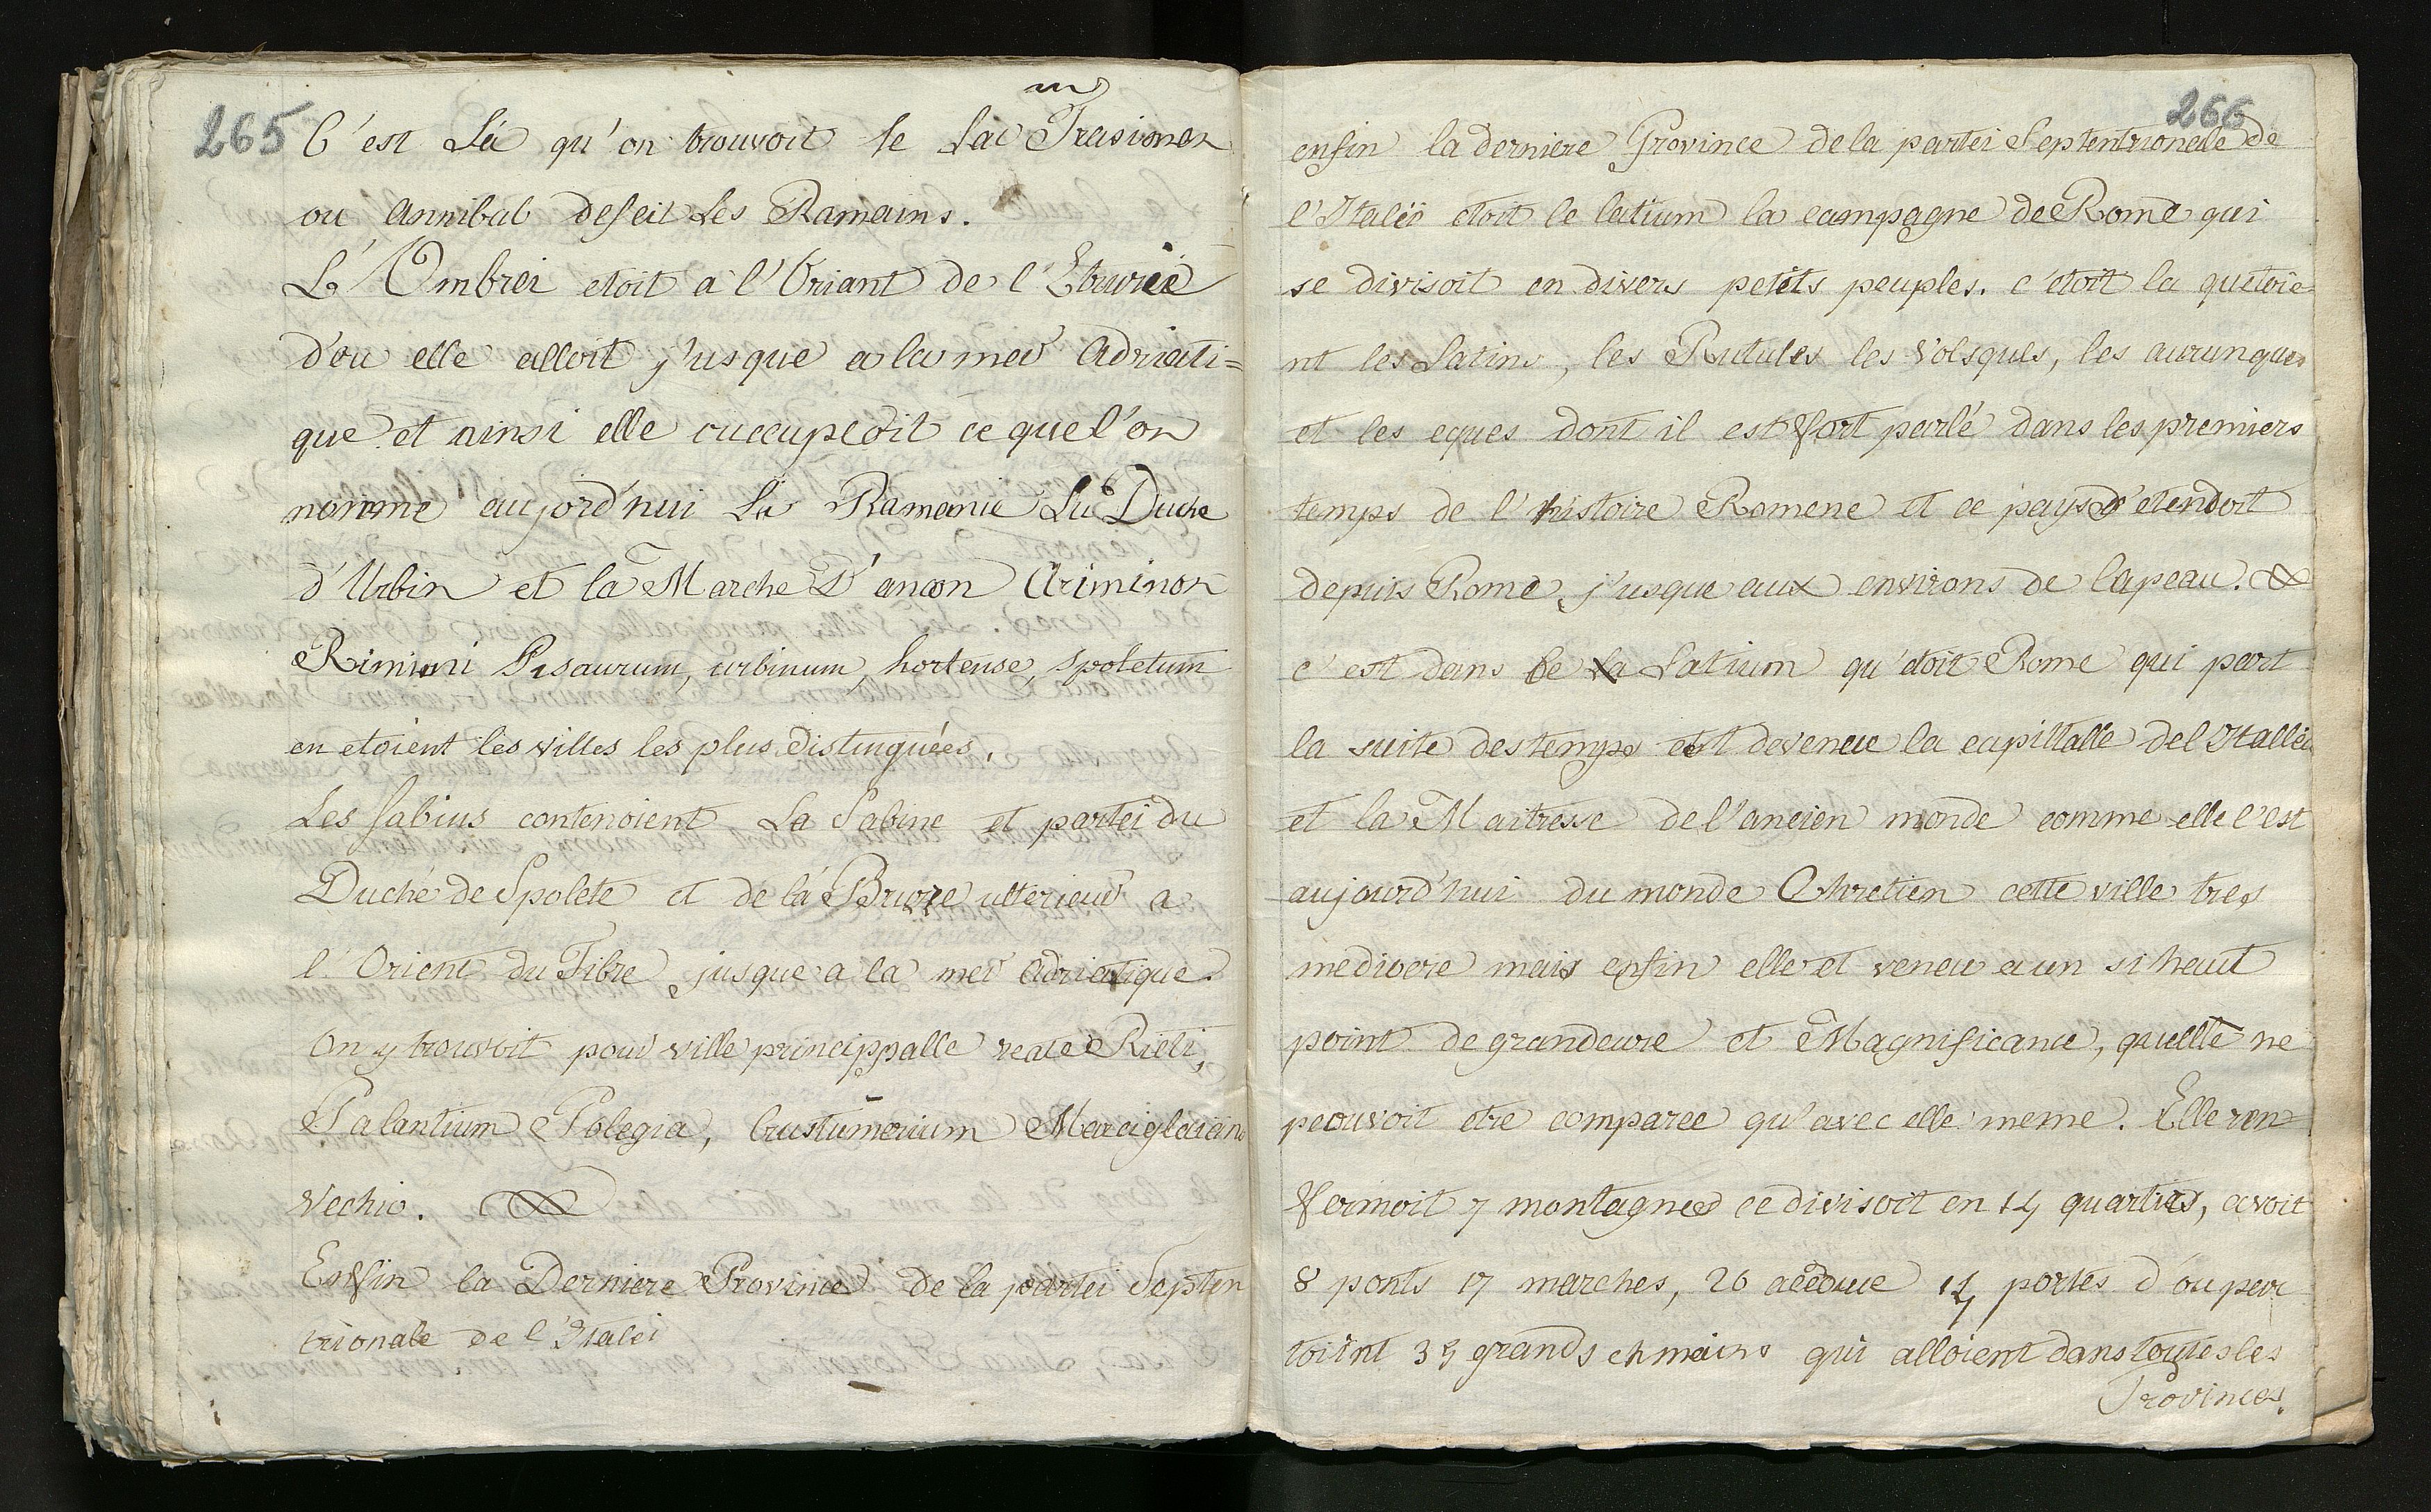 265
C'est Là qu'on trouvoit le Lac Trasimen
m
ou Annibal defeit Les Ramains.
L'Ombrei etoit a l'Oriant de l'Eturiéé
d'ou elle alloit j'usque a la mer Adriati=
que et ainsi elle ouccupedit ce que l'on
nomme aujord'hui La Ramanie Lu Duche
d'Urbin et la Marche D'ancon Ariminon
Rimini Pisaurum, urbinum, hortense, Spoletum
en etoient les villes les plus distinguées,
Les Sabius contenoient La Sabine et partei du
Duché de Spolete et de lá Bruzze ulterieur a
l'Orient du Tibre jusque a la mer Adriatique.
On y trouvoit pour ville princippalle reate Rieti,
Palantium Polegia, Crustumerium Marciglaiano
Vechio.
Enfin la Derniere Province de la partei Septen
trionale de l'Italei
266
enfin la derniere Province de la partei Septentrionale de
l'Italéi etoit le latium la campagne de Rome qui
se divisoit en divers petits peuples. c'etoit la quetoie
nt les Latins, les Rutules les Volsques, les aurunques
et les eques dont il est fort parlé dans les premiers
temps de l'histoire Romene et ce pays s'etendoit
depuis Rome j'usque aux environs de lapeau.
c'est dans le la Latium qu'etoit Rome qui part
la suite des temps est deveneue la capittalle del Itallie
et la Maitresse de l'ancien monde comme elle l'est
aujourd'hui du monde Chretien cette ville tres
mediocre mais enfin elle et veneu a un si heut
point de grandeure et Magnificance, quelle ne
peouvoit etre comparee qu'avec elle meme. Elle ren
fermoit 7 montagnes ce divisoit en 14 quarties, avoit
8 ponts 17 marches, 20 acedoue 14 portes d'ou par
toiint 35 grands chmains qui alloient dans toutes les
Provinces.